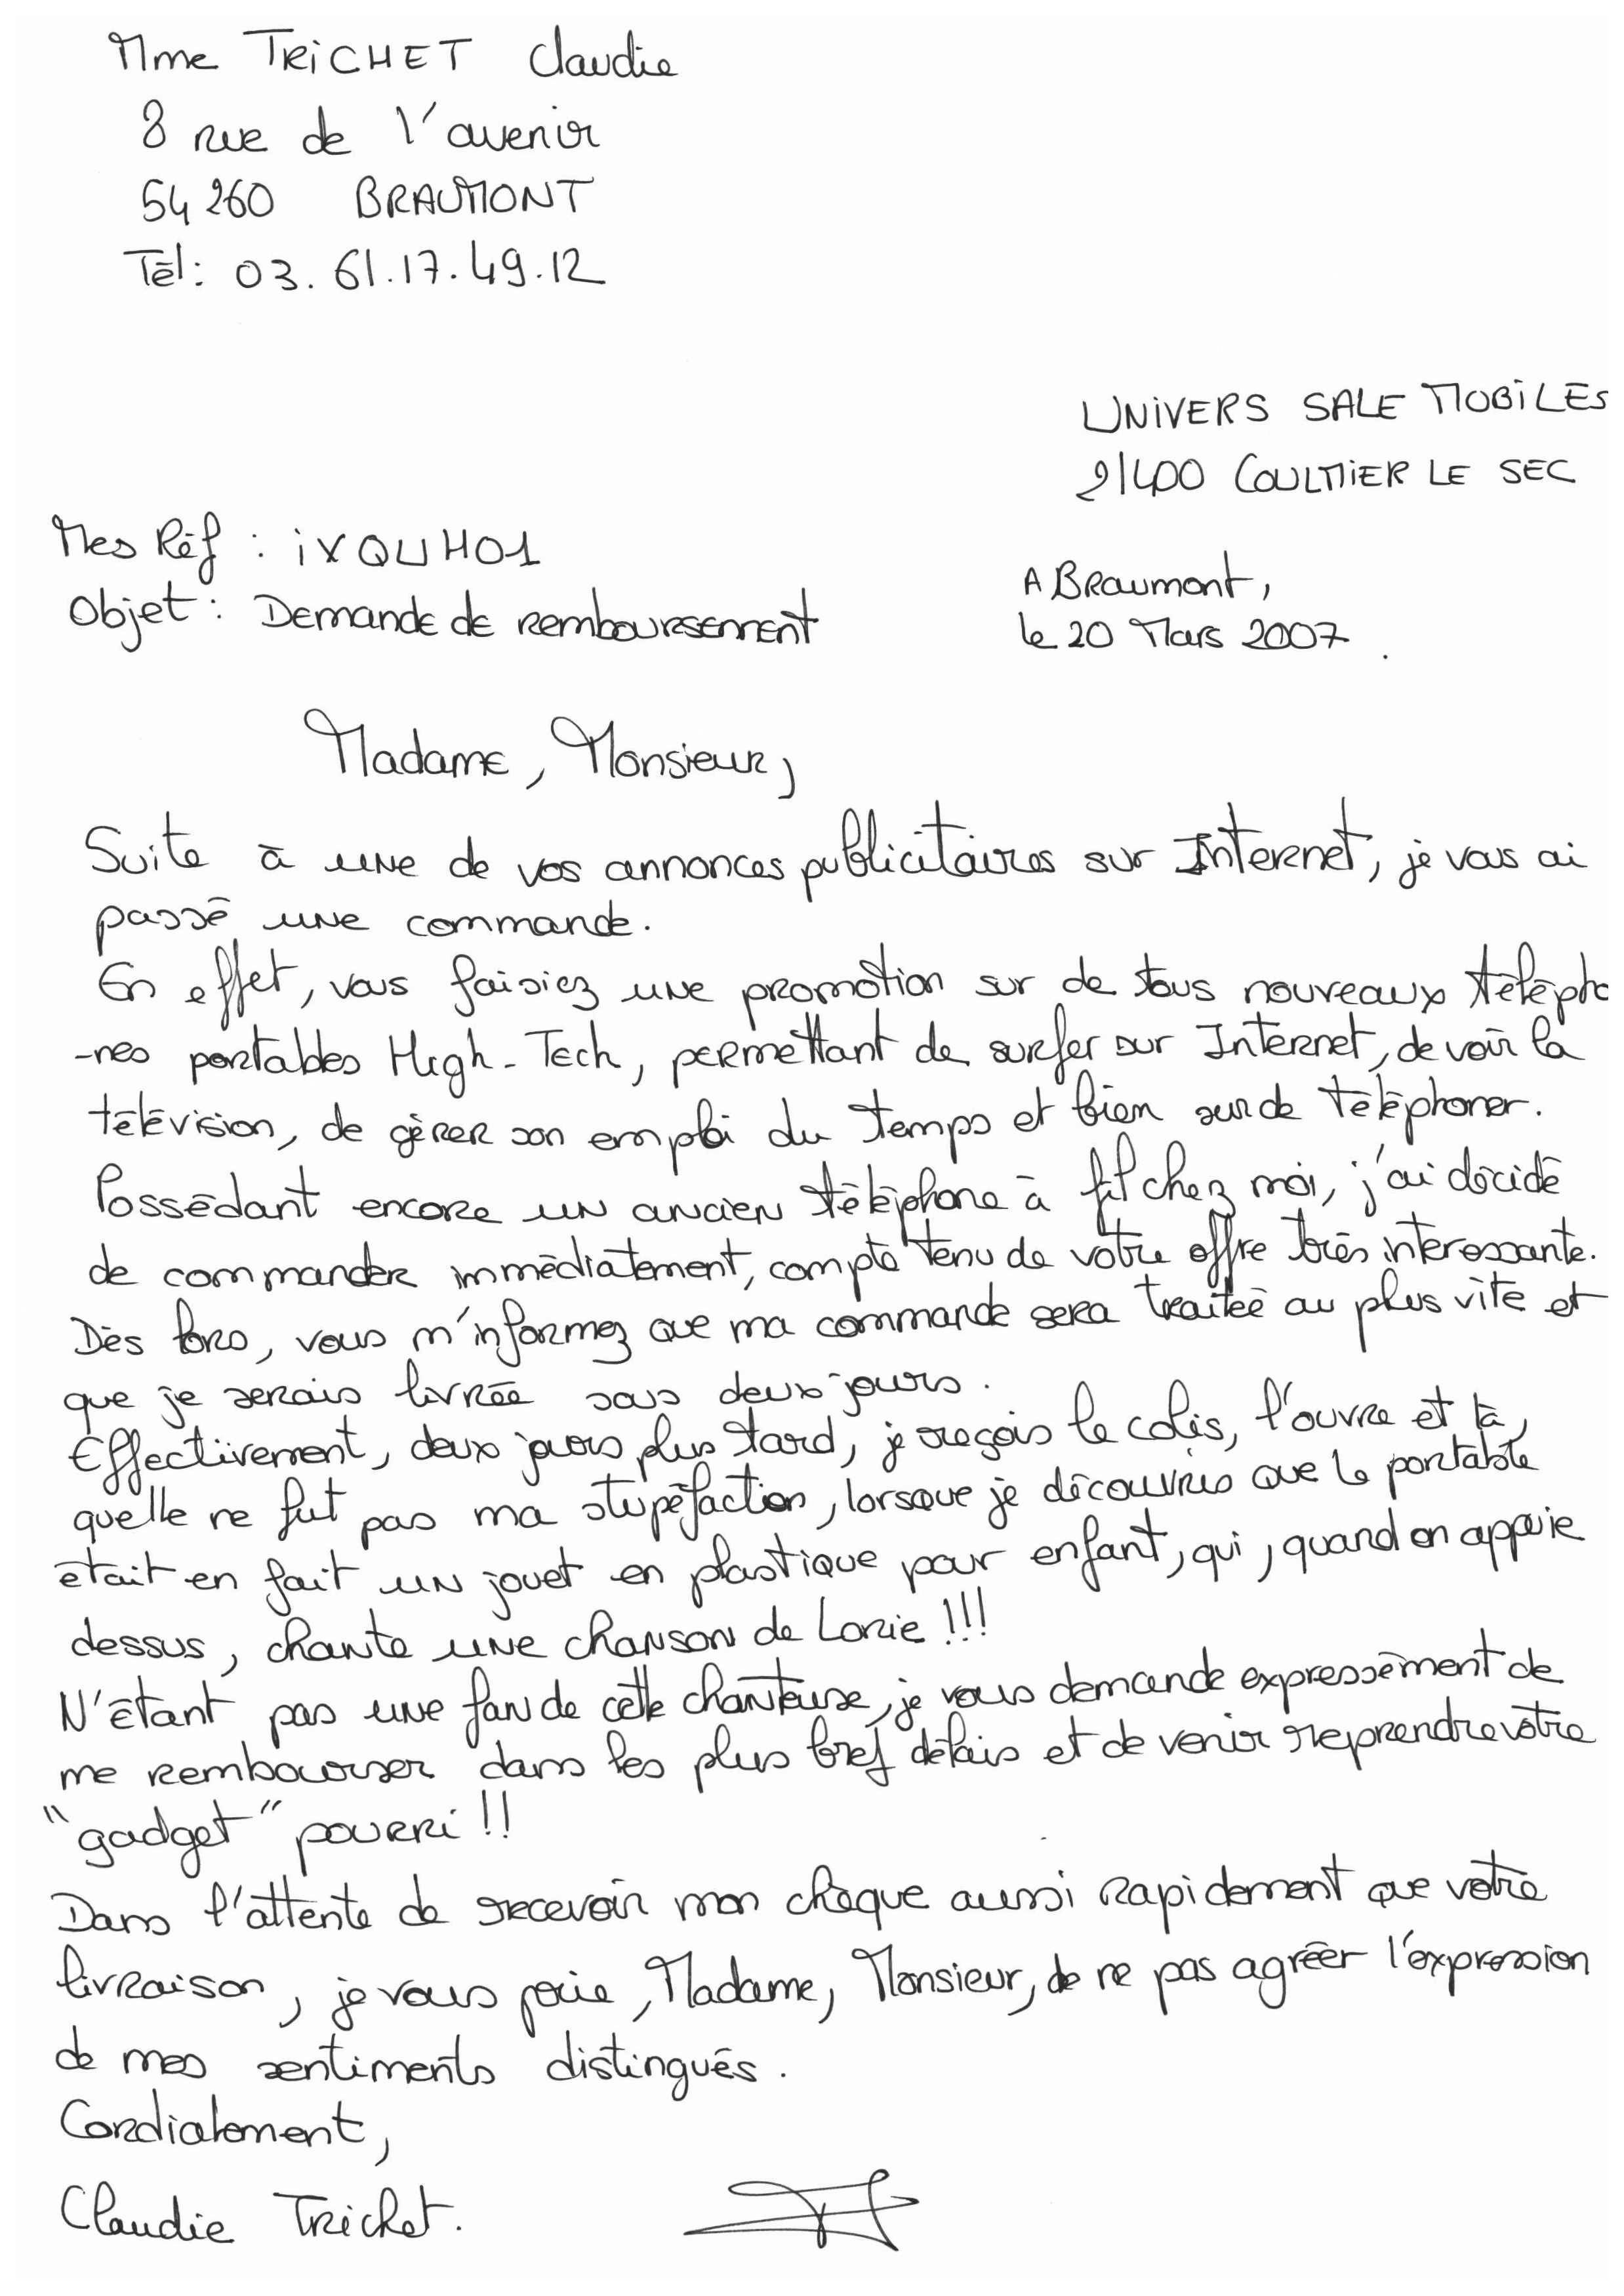 Mme TRICHET Claudie
8 rue de l'avenir
54260 BRAUMONT
Tél: 03.61.17.49.12
UNIVERS SALE MOBILES
21400 COULMIER LE SEC
Mes Réf : iXQUH01
A Braumont,
Objet : Demande de remboursement
le 20 Mars 2007.
Madame, Monsieur,
Suite à une de vos annonces publicitaires sur Internet, je vous ai
passé une commande.
En effet, vous faisiez une promotion sur de tous nouveaux télépho
-nes portables High-Tech, permettant de surfer sur Internet, de voir la
télévision, de gérer son emploi du temps et bien sur de téléphoner.
Possédant encore un ancien téléphone à fil chez moi, j'ai décidé
de commander immédiatement, compte tenu de votre offre très interessante.
Dès lors, vous m'informez que ma commande sera traiteé au plus vite et
que je serais livrée sous deux jours.
Effectivement, deux jours plus tard, je reçois le colis, l'ouvre et là,
quelle ne fut pas ma stupéfaction, lorsque je découvris que le portable
était en fait un jouet en plastique pour enfant, qui, quand on appuie
dessus, chante une chanson de Lorie !!!
N'étant pas une fan de cette chanteuse, je vous demande expressément de
me rembourser dans les plus bref délais et de venir reprendre votre
"gadget" pourri !!
Dans l'attente de recevoir mon chèque aussi rapidement que votre
livraison, je vous prie, Madame, Monsieur, de ne pas agréer l'expression
de mes sentiments distingués.
Cordialement,
Claudie Trichet.